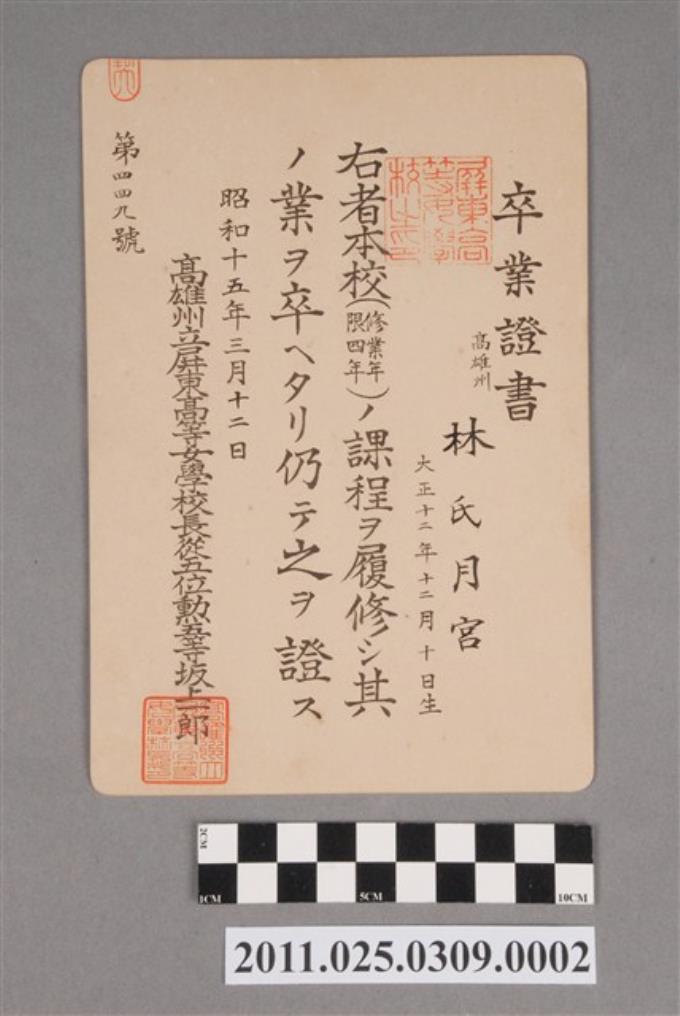 卒業證書
高雄州
林氏月宮
大正十二年十二月十日生
右者本校(修業年限四年)ノ課程ヲ履修シ其
ノ業ヲ卒ヘタリ仍テ之ヲ證ス
昭和十五年三月十二日
高雄州立屏東高等女學校長從五位勲五等坂上一郎
第四四九號
屏東高等女學校之印
2CM
1CM
5CM
10CM
2011.025.0309.0002